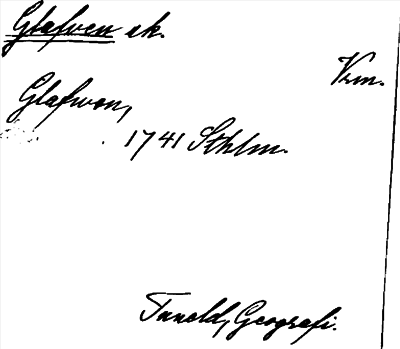 Glafven sk.
Vrm.
Glafwen,
1741 Sthlm.
Tuneld, Geografi.